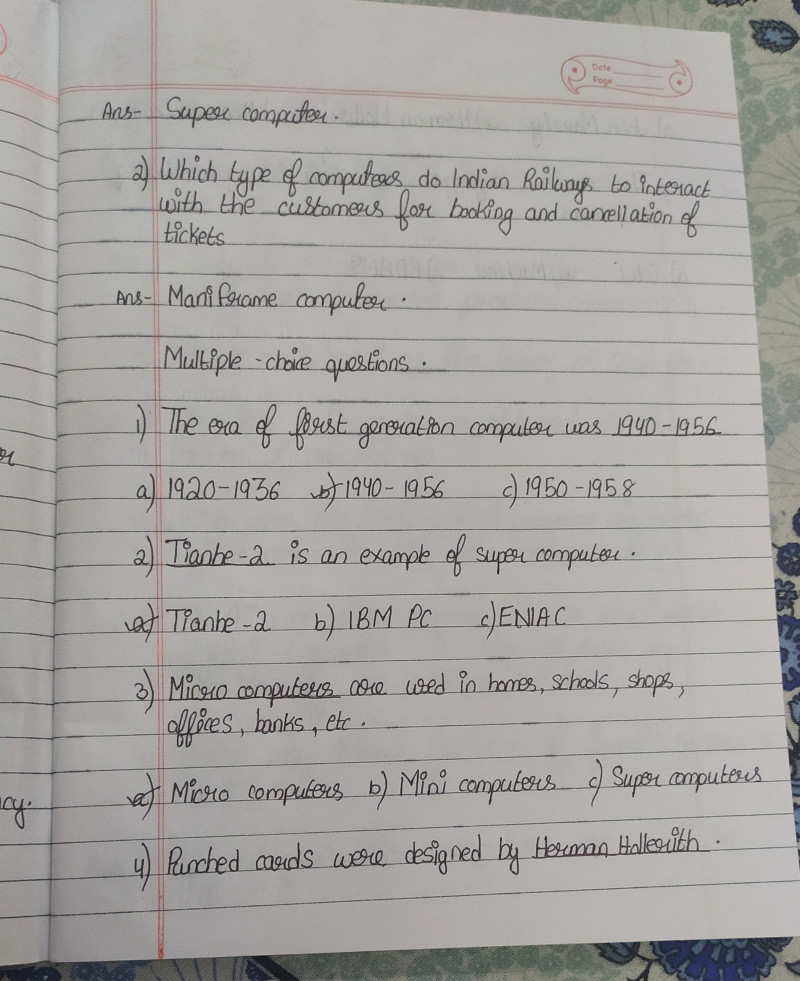 Date
Page
Ans- Super computer.
2) Which type of computers do Indian Railways to interact
with the customers for booking and cancellation of
tickets
Ans- Maniframe computer.
Multiple-choice questions.
1) The era of first generation computer was 1940-1956
a) 1920-1936 b) 1940-1956 c) 1950-1958
2) Tianhe-2 is an example of super computer.
a) Tianhe-2 b) IBM PC c) ENIAC
3) Micro computers are used in homes, schools, shops,
offices, banks, etc.
a) Micro computers b) Mini computers c) Super computers
4) Punched cards were designed by Herman Hollerith.
cy.